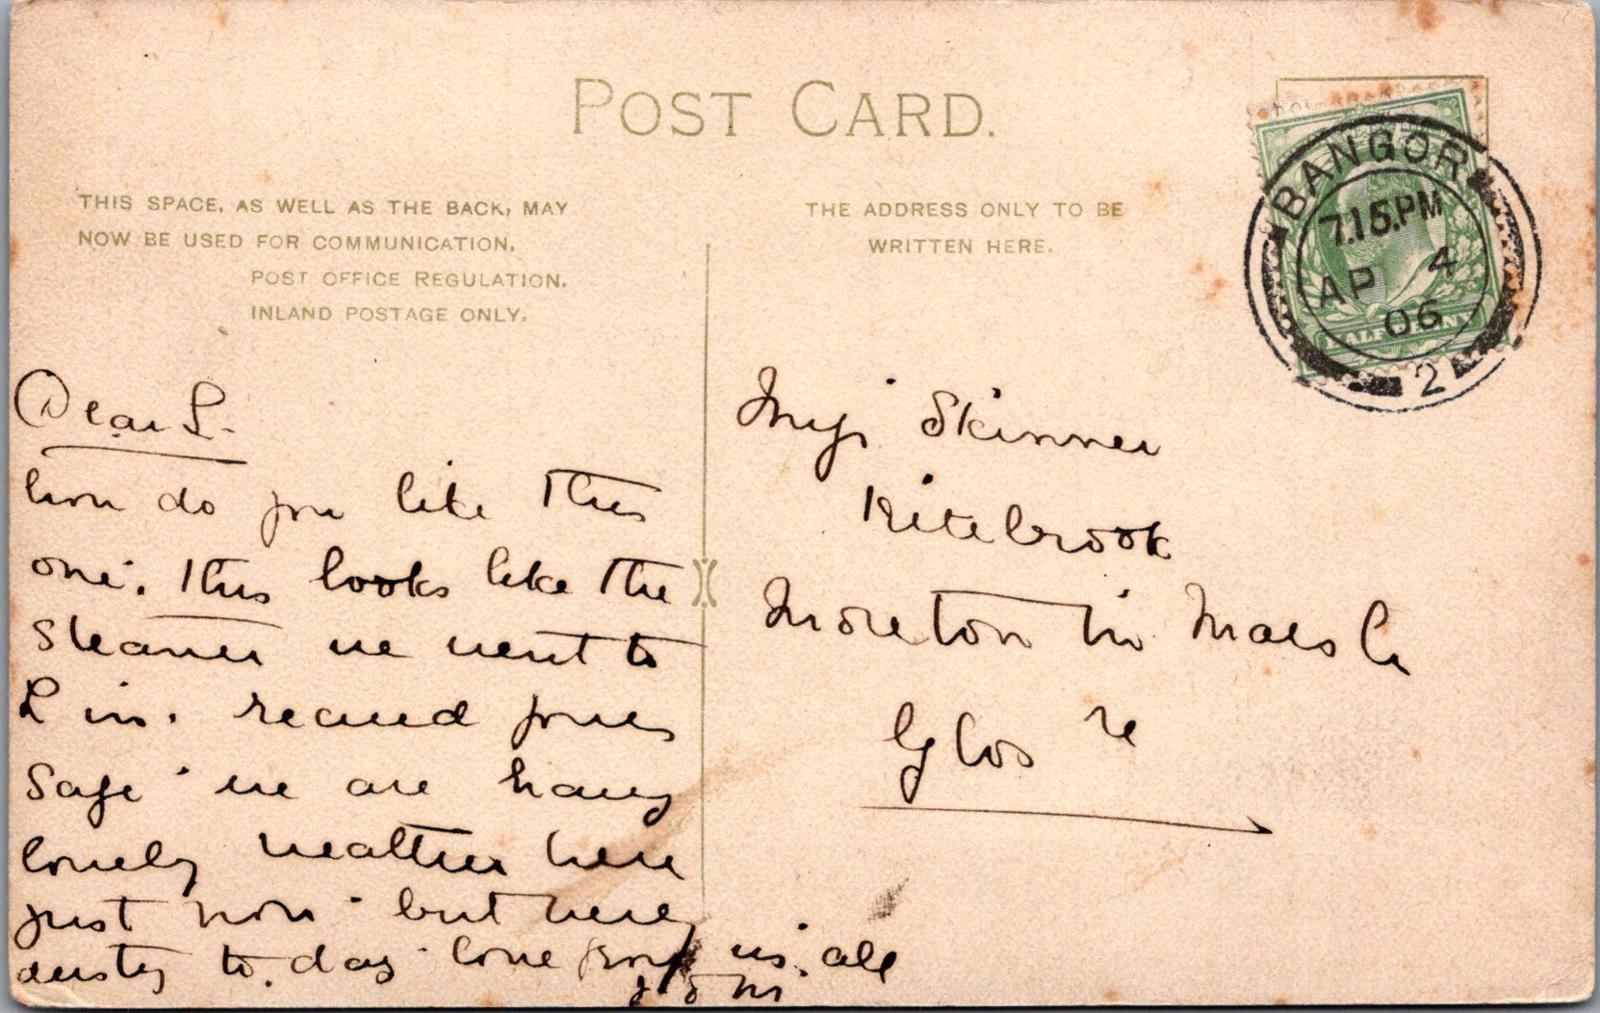 POST CARD.
THIS SPACE, AS WELL AS THE BACK, MAY
NOW BE USED FOR COMMUNICATION.
POST OFFICE REGULATION.
INLAND POSTAGE ONLY.
THE ADDRESS ONLY TO BE
WRITTEN HERE.
BANGOR
7.15.PM
AP 4
06
2
HALFPENNY
Dear L.
how do you like this
one. This looks like the
steamer we went to
L in. received yours
safe we are having
lovely weather here
just now but very
dusty to.day love from us all
Skinner
Kitebrook
Moreton in Marsh
Glos re